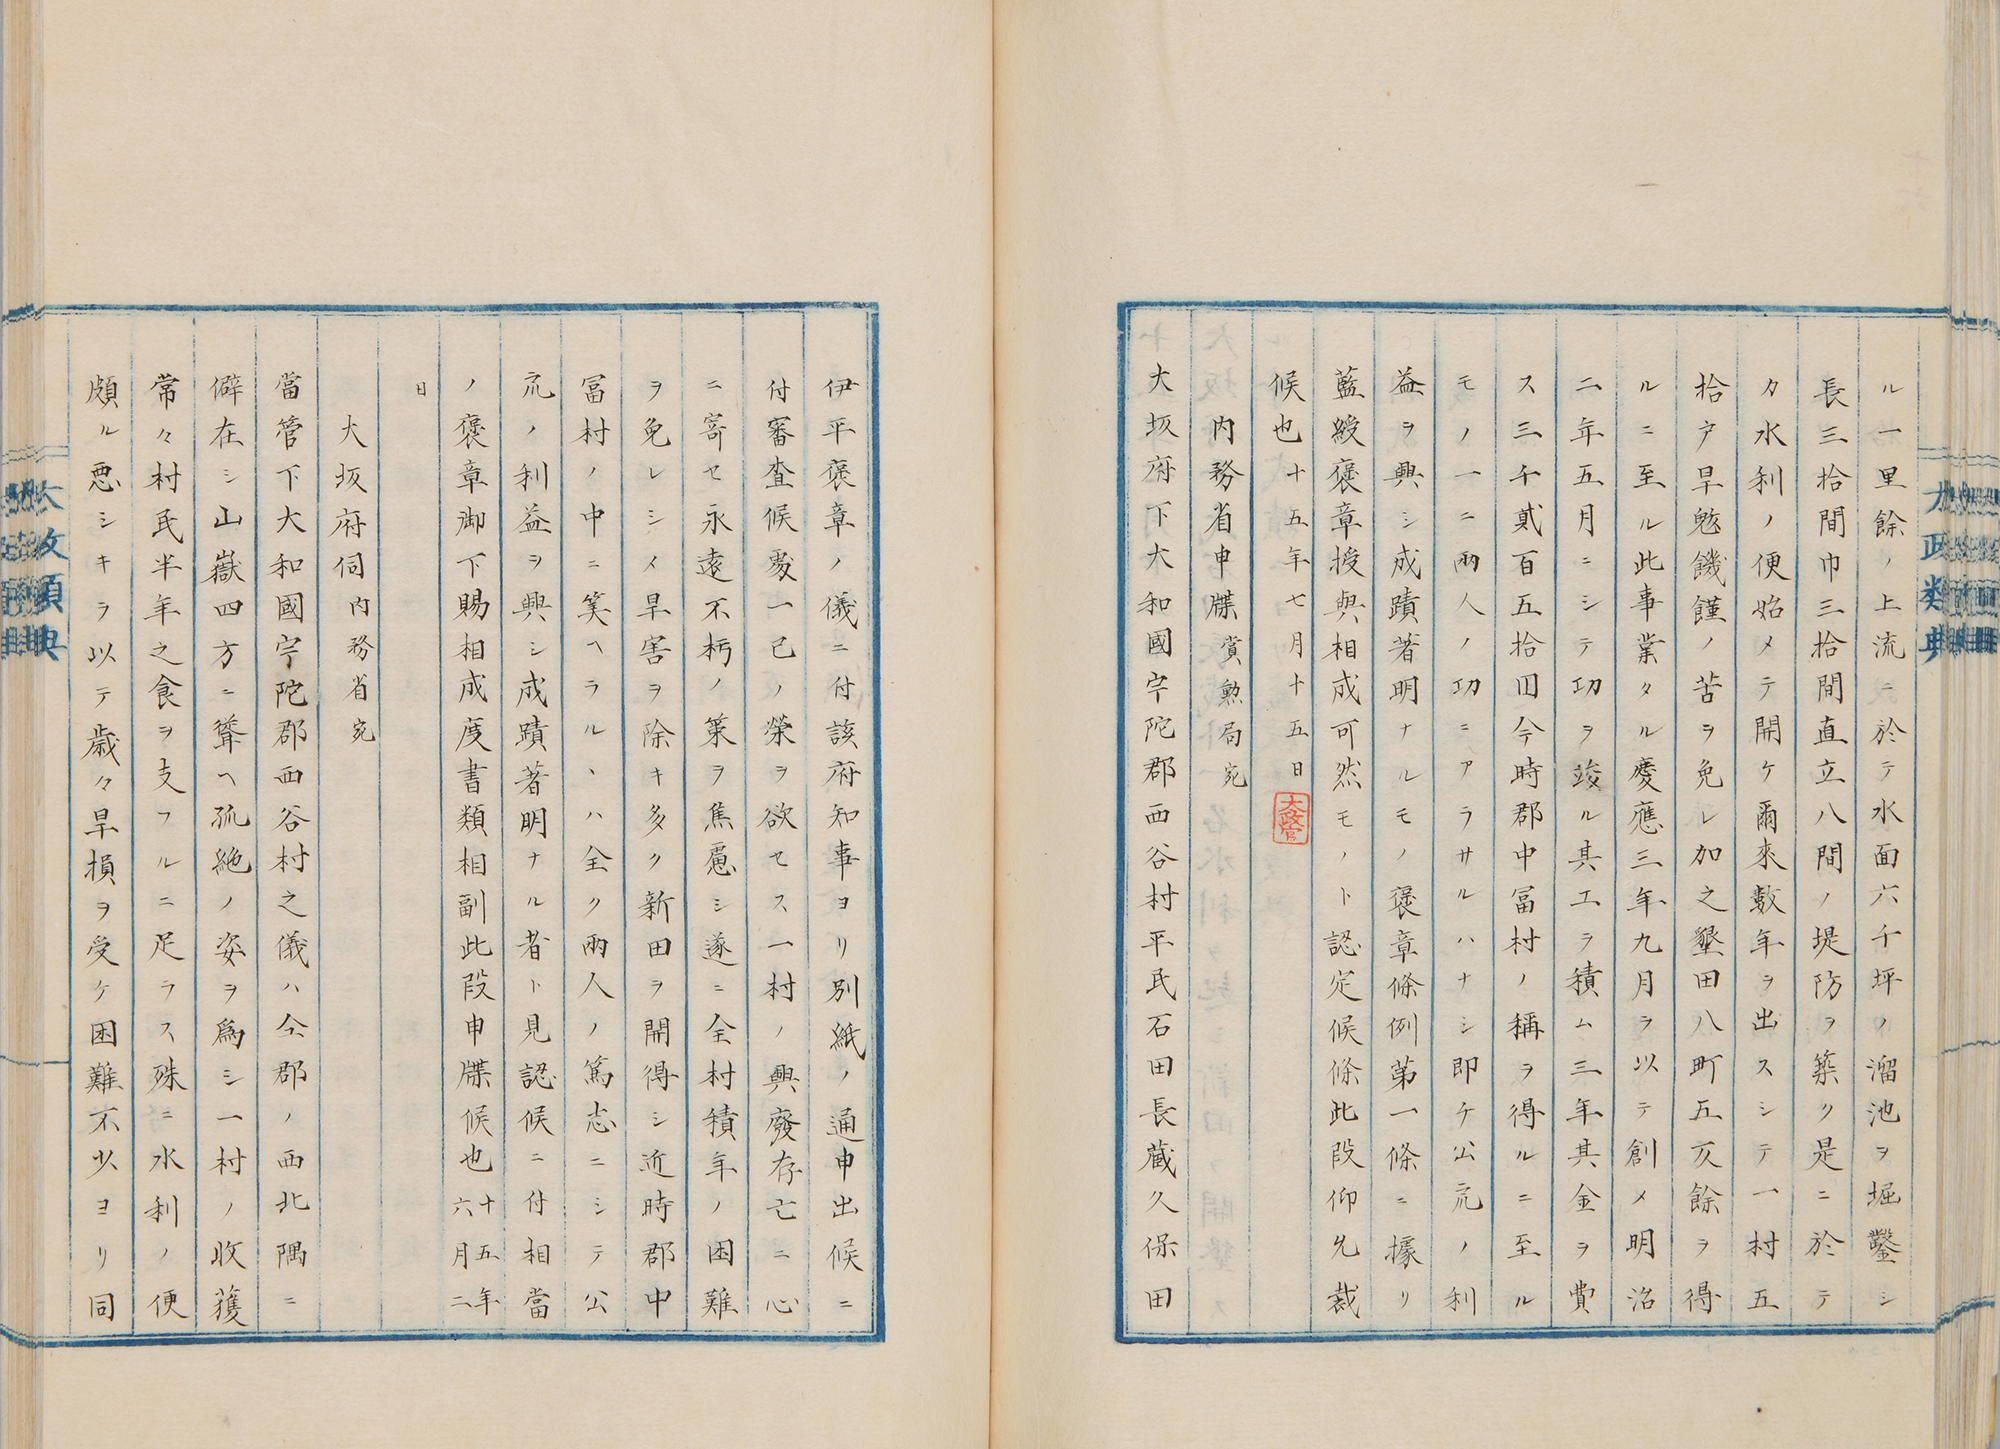 ル一里餘ノ上流ニ於テ水面六千坪ノ溜池ヲ堀鑿シ
長三拾間巾三拾間直立八間ノ堤防ヲ築ク是ニ於テ
カ水利ノ便始メテ開ケ爾來數年ヲ出スシテ一村五
拾戸旱魃饑饉ノ苦ヲ免レ加之墾田八町五反餘ヲ得
ルニ至ル此事業タル慶應三年九月ヲ以テ創メ明治
二年五月ニシテ功ヲ竣ル其工ヲ積ム三年其金ヲ費
ス三千貳百五拾圓今時郡中冨村ノ稱ヲ得ルニ至ル
モノ一ニ兩人ノ功ニアラサルハナシ即チ公衆ノ利
益ヲ興シ成蹟著明ナルモノ褒章條例第一條ニ據リ
藍綬褒章授與相成可然モノト認定候條此段仰允裁
候也十五年七月十五日
太政官
内務省申牒賞勲局宛
大坂府下大和國宇陀郡西谷村平民石田長藏久保田
太政類典
伊平褒章ノ儀ニ付該府知事ヨリ別紙ノ通申出候ニ
付審査候處一己ノ榮ヲ欲セス一村ノ興廢存亡ニ心
ニ寄セ永遠不朽ノ策ヲ焦慮シ遂ニ全村積年ノ困難
ヲ免レシメ旱害ヲ除キ多ク新田ヲ開得シ近時郡中
冨村ノ中ニ筭ヘラルヽハ全ク兩人ノ篤志ニシテ公
衆ノ利益ヲ興シ成蹟著明ナル者ト見認候ニ付相當
ノ褒章御下賜相成度書類相副此段申牒候也十五年六月二
日
大坂府伺内務省宛
當管下大和國宇陀郡西谷村之儀ハ仝郡ノ西北隅ニ
僻在シ山嶽四方ニ聳ヘ孤絶ノ姿ヲ爲シ一村ノ收穫
常々村民半年之食ヲ支フルニ足ラス殊ニ水利ノ便
頗ル悪シキヲ以テ歳々旱損ヲ受ケ困難不少ヨリ同
太政類典